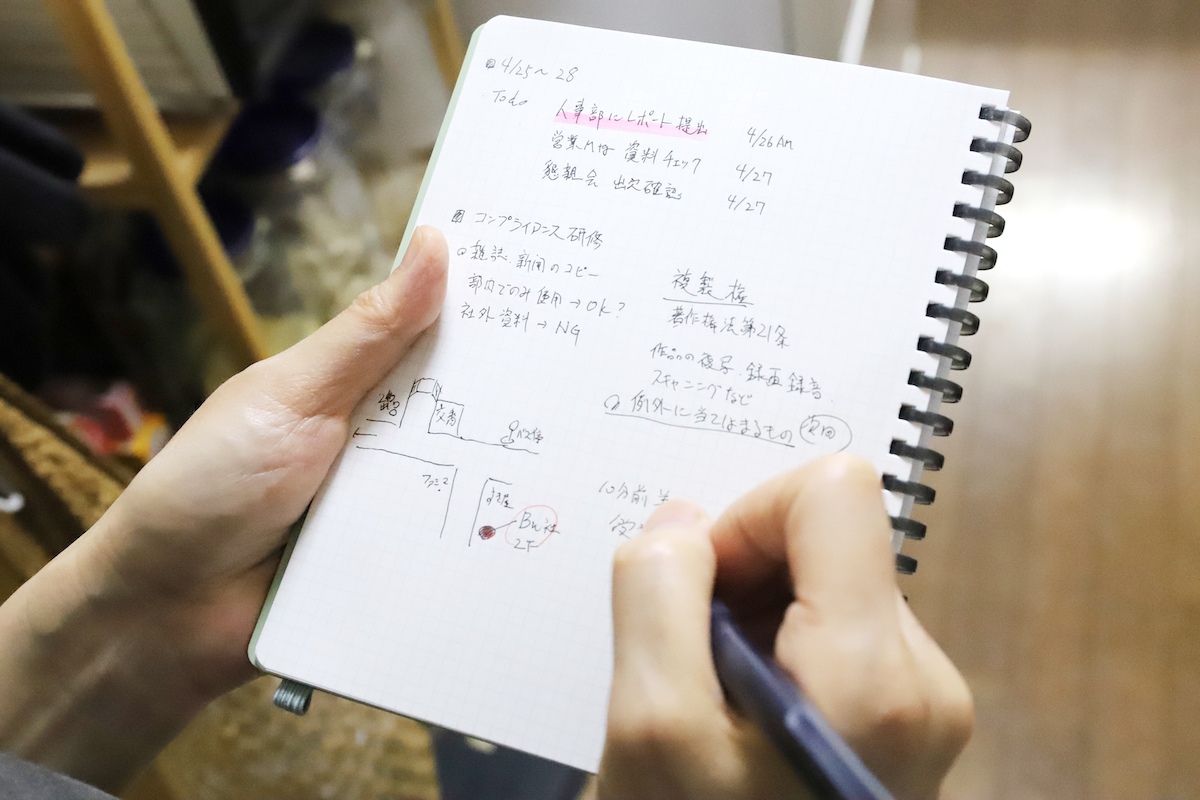 4/25〜28
Todo
人事部にレポート提出 4/26 AM
営業Mtg 資料チェック 4/27
懇親会 出欠確認 4/27
コンプライアンス研修
雑誌・新聞のコピー
部内でのみ使用→OK?
社外資料→NG
複製権
著作権法第21条
作品の複写・録画録音・
スキャニングなど
例外に当てはまるもの 次回
交番
バス停
ファミマ
すき屋
社
2F
10分前